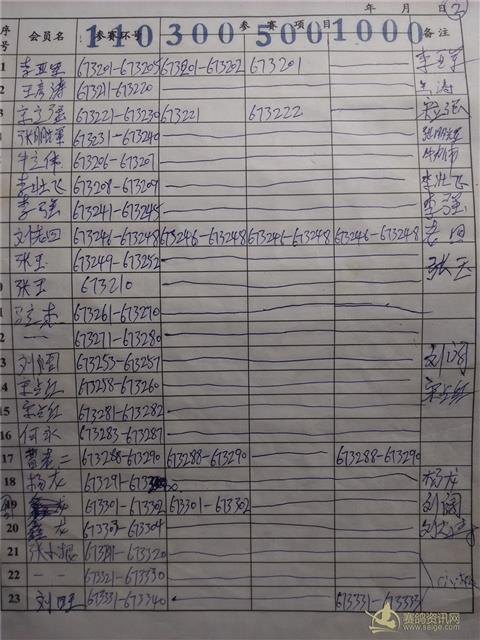 年 月 日 ③
序号 会员名 参赛环号 参赛项目 备注
110 300 500 1000
1 李亚军 673201-673205 673201-673202 673201
2 王彦涛 673211-673220 王涛
3 673221-673230 673221 673222
4 张鹏军 673231-673240
5 673206-673207
李壮飞 673208-673209 李壮飞
李强 673241-673245 李强
刘志四 673246-673248 673246-673248 673246-673248 673246-673248
张玉 673249-673252 张玉
张玉 673210
673261-673270
一一 673271-673280
13 刘阔 673253-673257 刘阔
14 宋占红 673258-673260 宋占红
15 宋占红 673281-673282
16 何永 673283-673287
17 曹老二 673288-673290 673288-673290 673288-673290
18 杨龙 673291-673300 杨龙
19 龙 673301-673302 673301-673302 刘阔
20 鑫龙 673303-673304
21 张小根 673311-673320
22 一一 673321-673330
23 刘四旺 673331-673340 673331-673333
赛鸽资讯网
www.saige.com